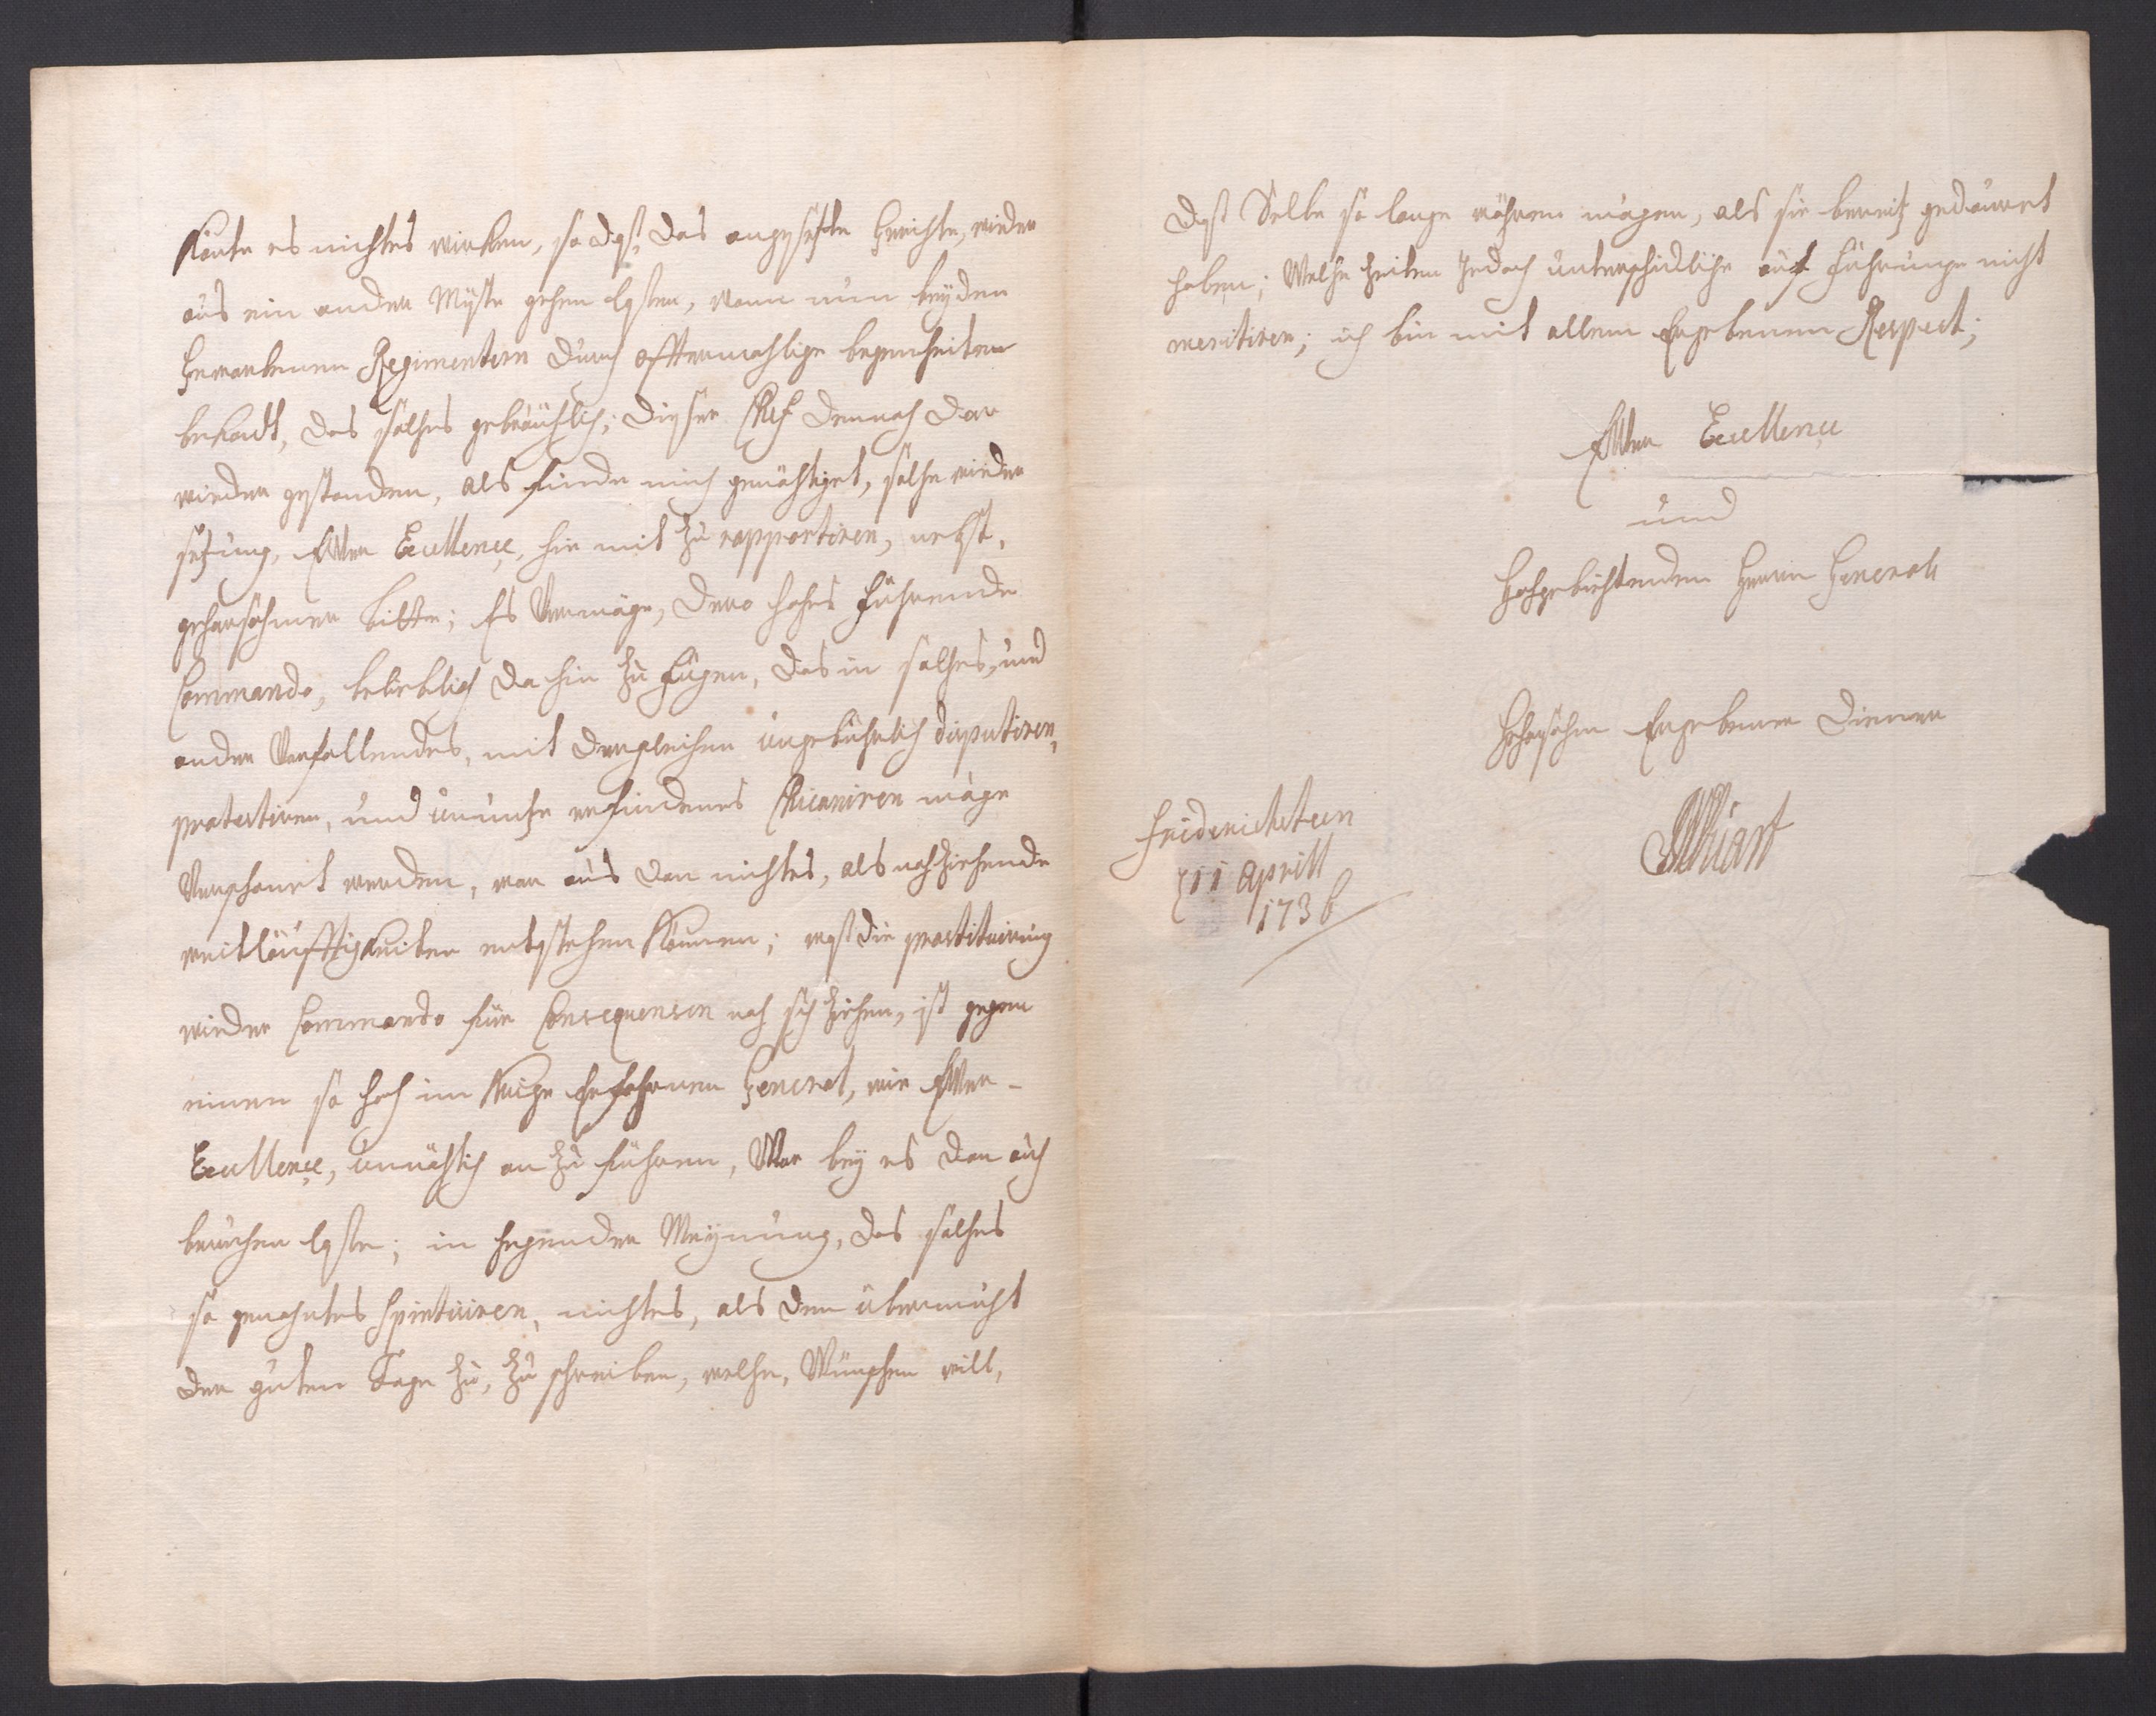 Konte es nichtes wirken, so dast das angeseste Gerichte, wieder
aus ein ander Myste gehen lasten, wenn nun beyden
Geworbenen Regimentern durch offtermahlige begenheiten
bekandt, das solches gebräuchlich; dieser Chef dennoch dar
wieder gestanden, als finde mich genöhtiget, solche wieder
setzung, Ewer Excellence, hie mit zu rapportiren, nebst,
gehorsahmer bitte; Es Vermöge, dero hohes führende
Commando, belieblich da hin zu fügen, das in solches, und
ander Vorfallendes, mit dergleichen ungebührlich disputiren,
protestiren, und unnütze erfindenes Chicaniren möge
Verschonet werden, war aus dan nichtes, als nachziehende
weitläufftigkeiten entstehen können; wast die prostituirung
wieder Commando für Consequensen nach sich ziehen, ist gegen
einen so hoch im Kriege Erfahrnen General, wie Ewer
Excellence, unnöhtig an zu führen, War bey es dan auch
beruhen laste; in hegender Meynung, das solches
so genahntes Spintuiren, nichtes, als dem übermuht
der guten Tage zu, zu schreiben, welche, Wünschen will,
dast Selbe so lange währen mögen, als sie bereitz gedauret
haben; Welche Zeiten jedoch unterschiedliche auf führunge nicht
meritiren; ich bin mit allem Ergebenen Respect;
Ewer Excellence
und
Hochgebiehtenden Herrn Generals
Gehorsahm Ergebener Diener
Friderichsteen
11 Aprill
1736